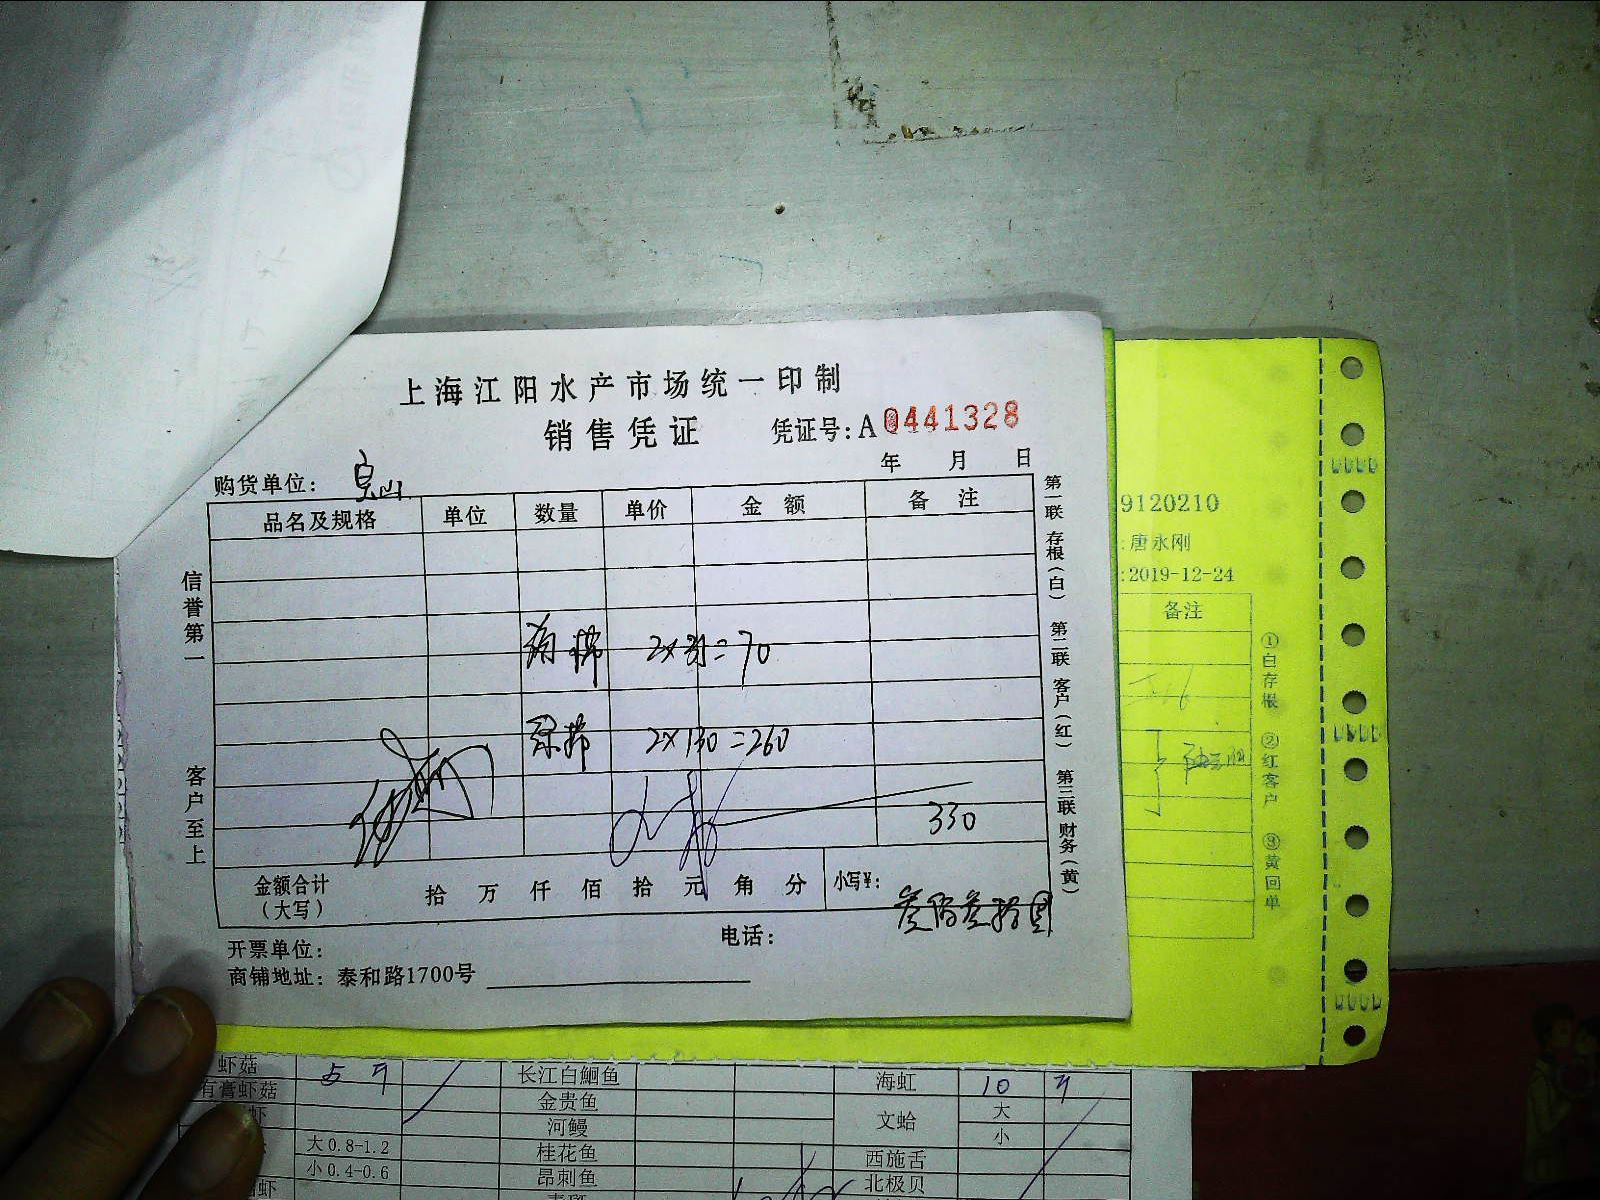 上海江阳水产市场统一印制
销售凭证 凭证号:A 0441328
年 月 日
购货单位: 宝山
品名及规格 单位 数量 单价 金额 备注
2×35=70
2×130=260
330
金额合计(大写) 拾 万 仟 佰 拾 元 角 分 小写¥:
叁佰叁拾圆
开票单位: 电话:
商铺地址: 泰和路1700号
信誉第一 客户至上
第一联 存根(白) 第二联 客户(红) 第三联 财务(黄)
9120210
:唐永刚
:2019-12-24
备注
①白存根 ②红客户 ③黄回单
虾菇 长江白鮰鱼 海虹 10
有膏虾菇 金贵鱼 文蛤 大
虾 河鳗 小
大0.8-1.2 桂花鱼 西施舌
小0.4-0.6 昂刺鱼 北极贝